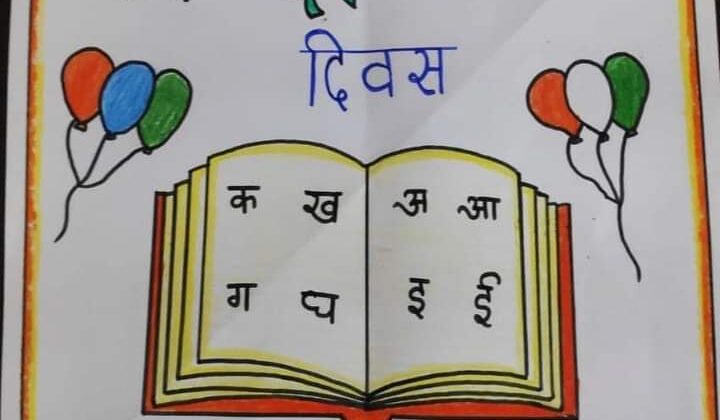 दिवस
क ख अ आ
ग घ इ ई